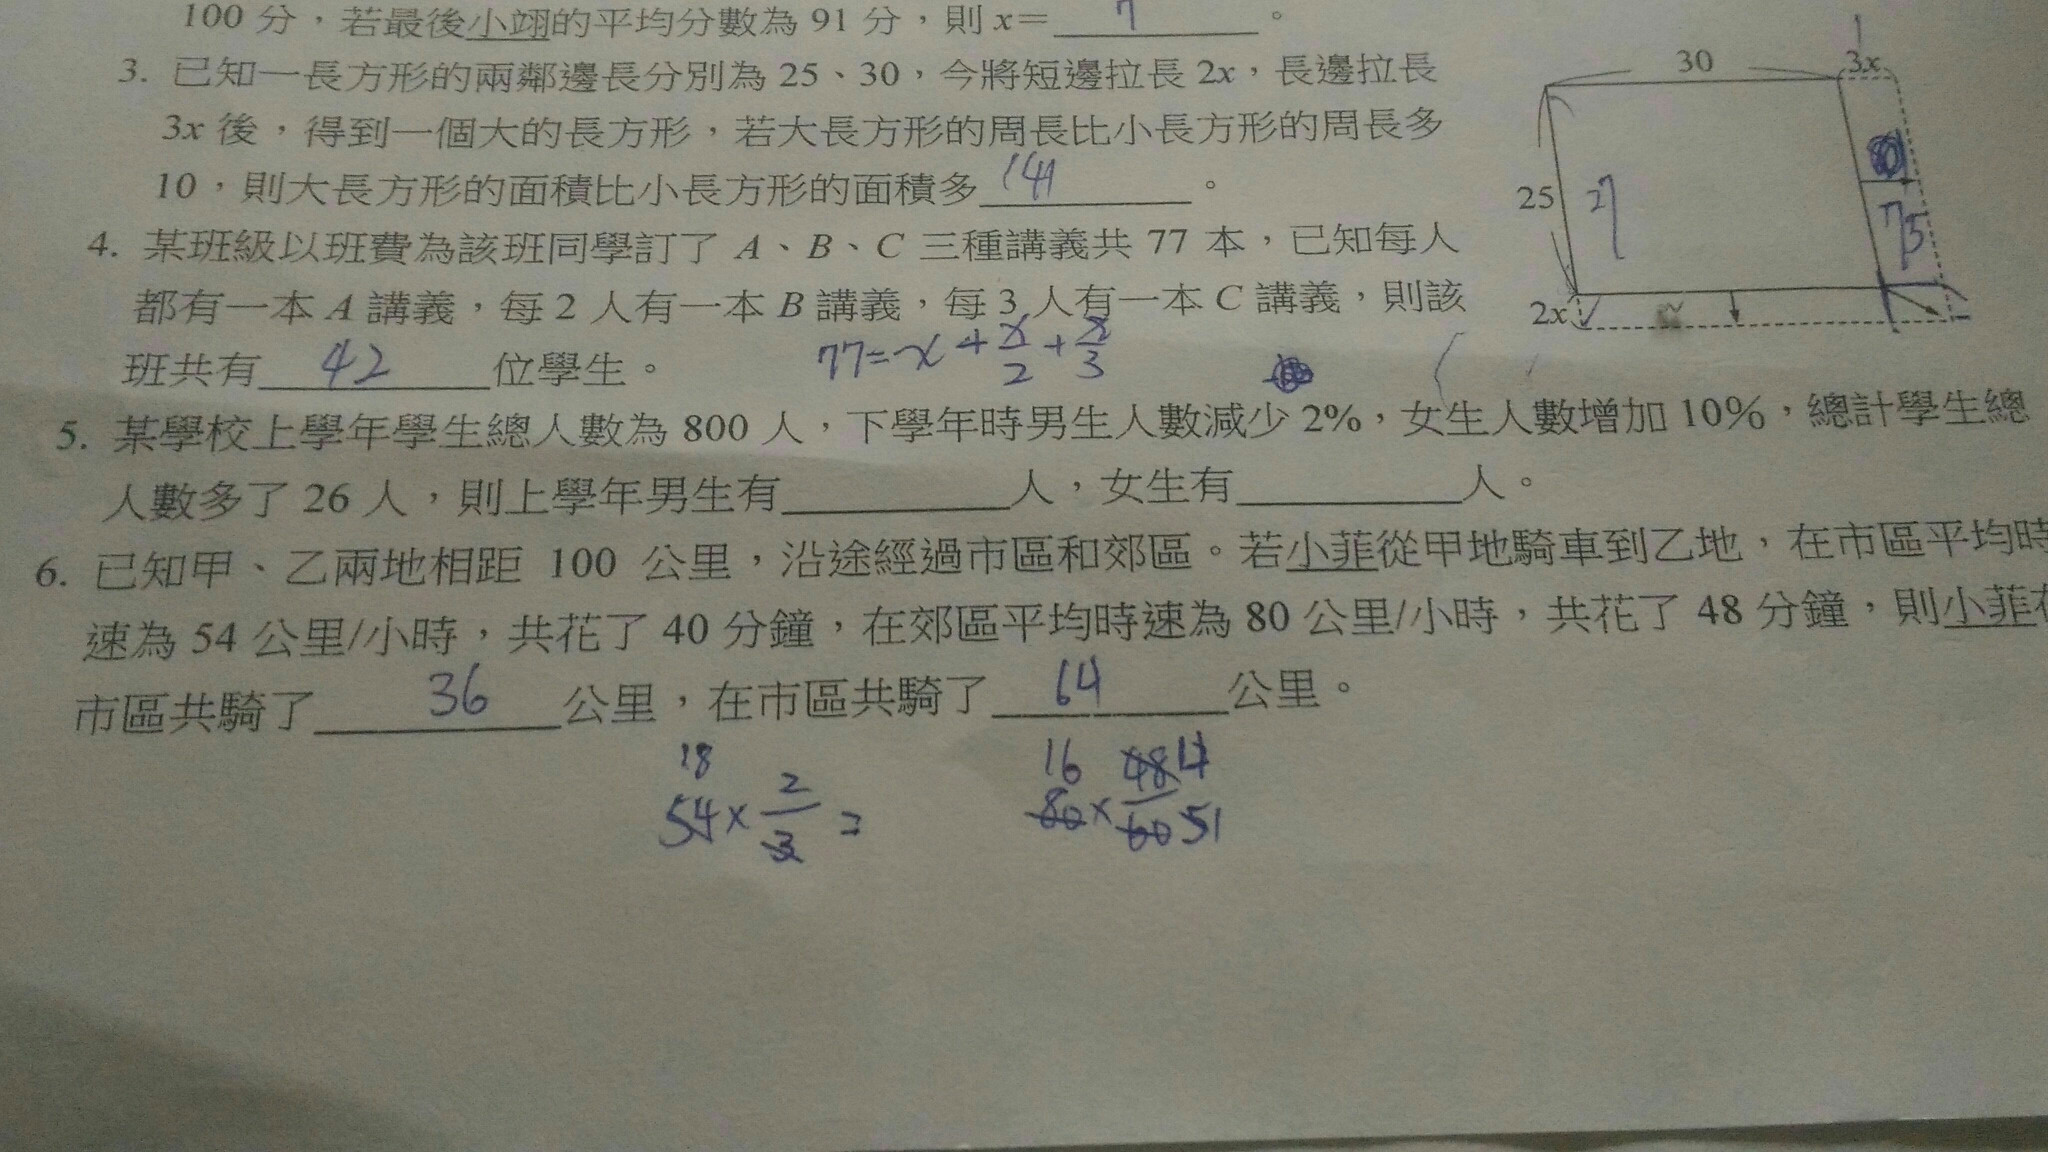 100 分，若最後小翊的平均分數為 91 分，則 x＝ 7 。
3. 已知一長方形的兩鄰邊長分別為 25、30，今將短邊拉長 2x，長邊拉長
3x 後，得到一個大的長方形，若大長方形的周長比小長方形的周長多
10，則大長方形的面積比小長方形的面積多 141 。
30
3x
1
25
27
75
2x
2
4. 某班級以班費為該班同學訂了 A、B、C 三種講義共 77 本，已知每人
都有一本 A 講義，每 2 人有一本 B 講義，每 3 人有一本 C 講義，則該
班共有 42 位學生。
77=x+x/2+x/3
5. 某學校上學年學生總人數為 800 人，下學年時男生人數減少 2%，女生人數增加 10%，總計學生總
人數多了 26 人，則上學年男生有＿＿＿＿人，女生有＿＿＿＿人。
6. 已知甲、乙兩地相距 100 公里，沿途經過市區和郊區。若小菲從甲地騎車到乙地，在市區平均時
速為 54 公里/小時，共花了 40 分鐘，在郊區平均時速為 80 公里/小時，共花了 48 分鐘，則小菲在
市區共騎了 36 公里，在市區共騎了 64 公里。
18
54×2/3=
16 48 4
80× 60 5